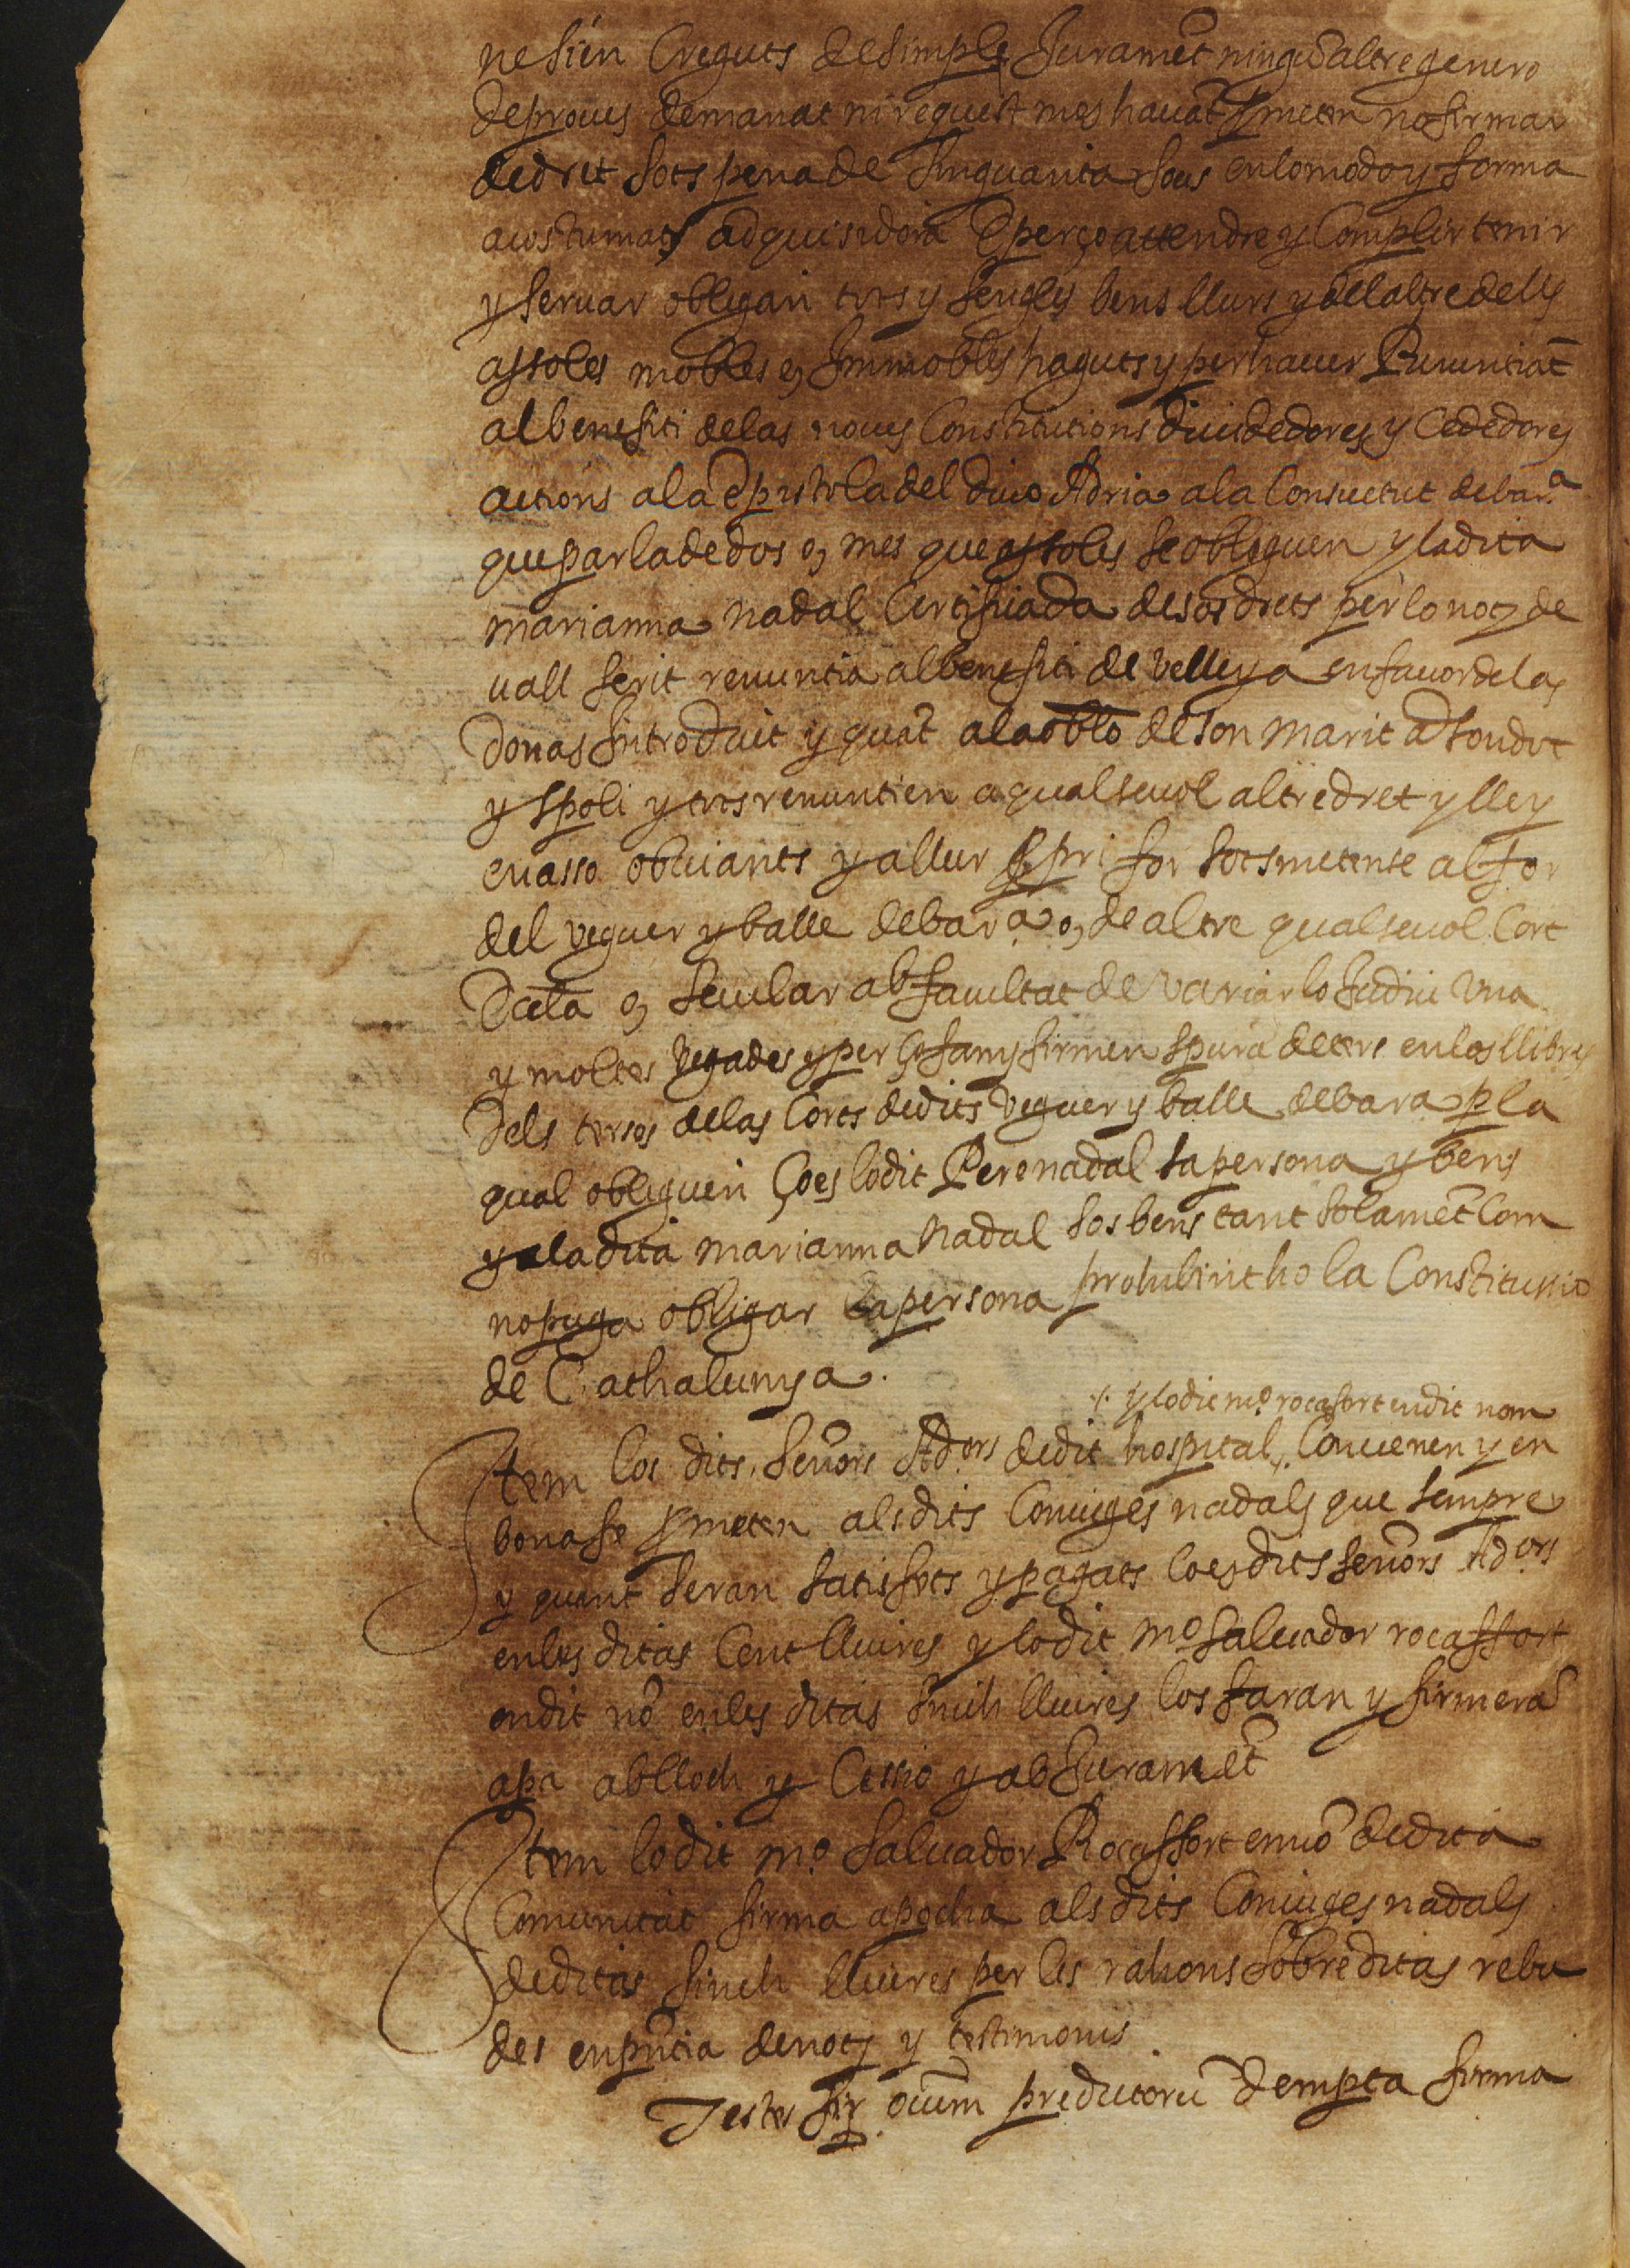 ne sien Creguts de simple Juramēt ningū altre genero
de proues demanat ni request mes hauāt ꝓmeten no firmar
de dret sots pena de sinquanta sous en lo modo y forma
acostumats adquisidora E per ço attendre y Complir tenir
y seruar obligan tots y sengles bens llurs y del altre dells
assoles mobles e Immobles haguts y per hauer Renuntiāt
al benefici de las noues Constitutions diuidedores y Cededores
actions a la Epistola del diuo Adria a la Consuetut de bar.ª
que parla de dos o mes que assoles se obliguen y la dita
marianna nadal Certificada de sos drets per lo not de
uall scrit renuntia al benefici de velleya en fauor de las
donas Introduit y quāt a la oblō de son marit a son dot
y spoli y tots renuntien a qualseuol altre dret y lley
en asso obuiants y a llur ꝓpri for sotsmetense al for
del veguer y balle de barª o de altre qualseuol Cort
Ecctā o secular ab facultat de variar lo Judici vna
y moltes vegades y per ço fan y firmen scpura de ters en los llibres
dels tersos de las Corts de dits veguer y balle de bara p̱ la
qual obliguen Ço es lo dit Pere nadal sa persona y bens
y a la dita marianna nadal sos bens tant solamēt Com
no puga obligar la persona prohibintho la Constitutio
de Cathalunya.
·/· y lo dit mº rocafort en dit nom
Item los dits Señors Adors de dit hospital ·/· Conuenen y en
bona fe ꝓmeten als dits Coniuges nadals que sempre
y quant seran satisfets y pagats Ço es dits señors Adors
en les ditas Cent lliures y lo dit mº saluador rocaffort
en dit nō en les ditas sinch lliures los faran y firmerā
apª ab lloch y Cessio y ab Juramēt
Item lo dit mº saluador Rocaffort en nō de dita
Comunitat firma apocha als dits Coniuges nadals
de ditas sinch lliures per les rahons sobreditas rebu
des en pñtia de not y testimonis
Testes fir. oium predictorū dempta firma